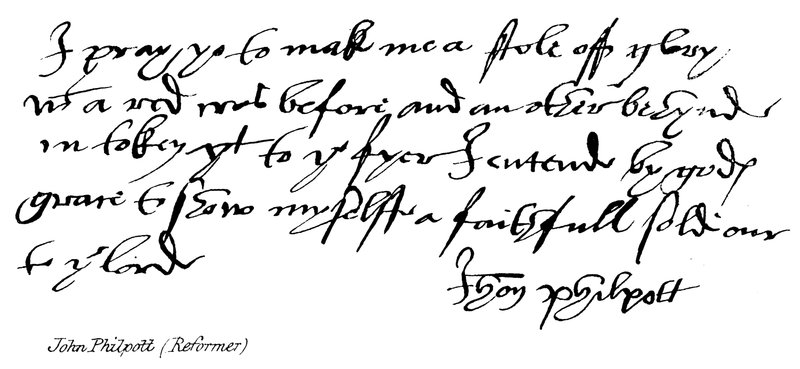 I pray yo to mak me a stole off glory
wt a red cros before and an other behynd
in token yt to ye fyer I entend by gods
grace to show myselffe a faithfull soldiour
to ye lord
Jhon philpott
John Philpott (Reformer)